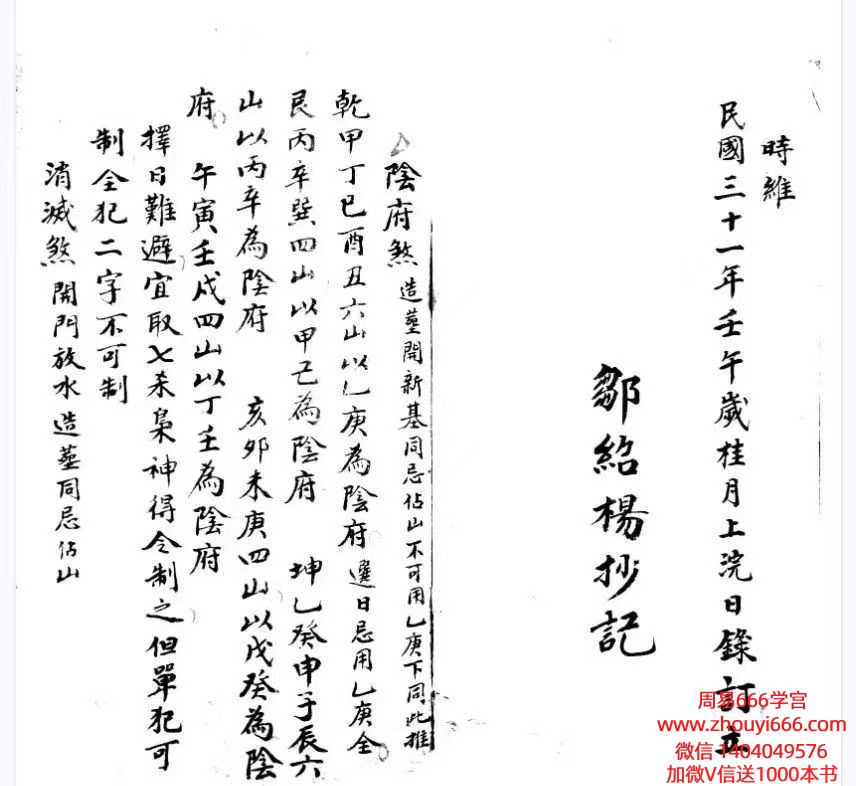 時維
民國三十一年壬午歲桂月上浣日錄訂立
鄒紹楊抄記
陰府煞 造葬開新基同忌佔山不可用乙庚下同此推
乾甲丁巳酉丑六山以乙庚為陰府 選日忌用乙庚全
艮丙辛巽四山以甲己為陰府 坤乙癸申子辰六
山以丙辛為陰府 亥卯未庚四山以戊癸為陰
府 午寅壬戌四山以丁壬為陰府
擇日難避宜取七杀梟神得令制之但單犯可
制全犯二字不可制
消滅煞 開門放水造葬同忌佔山
周易666学宫
www.zhouyi666.com
微信 1404049576
加微V信送1000本书